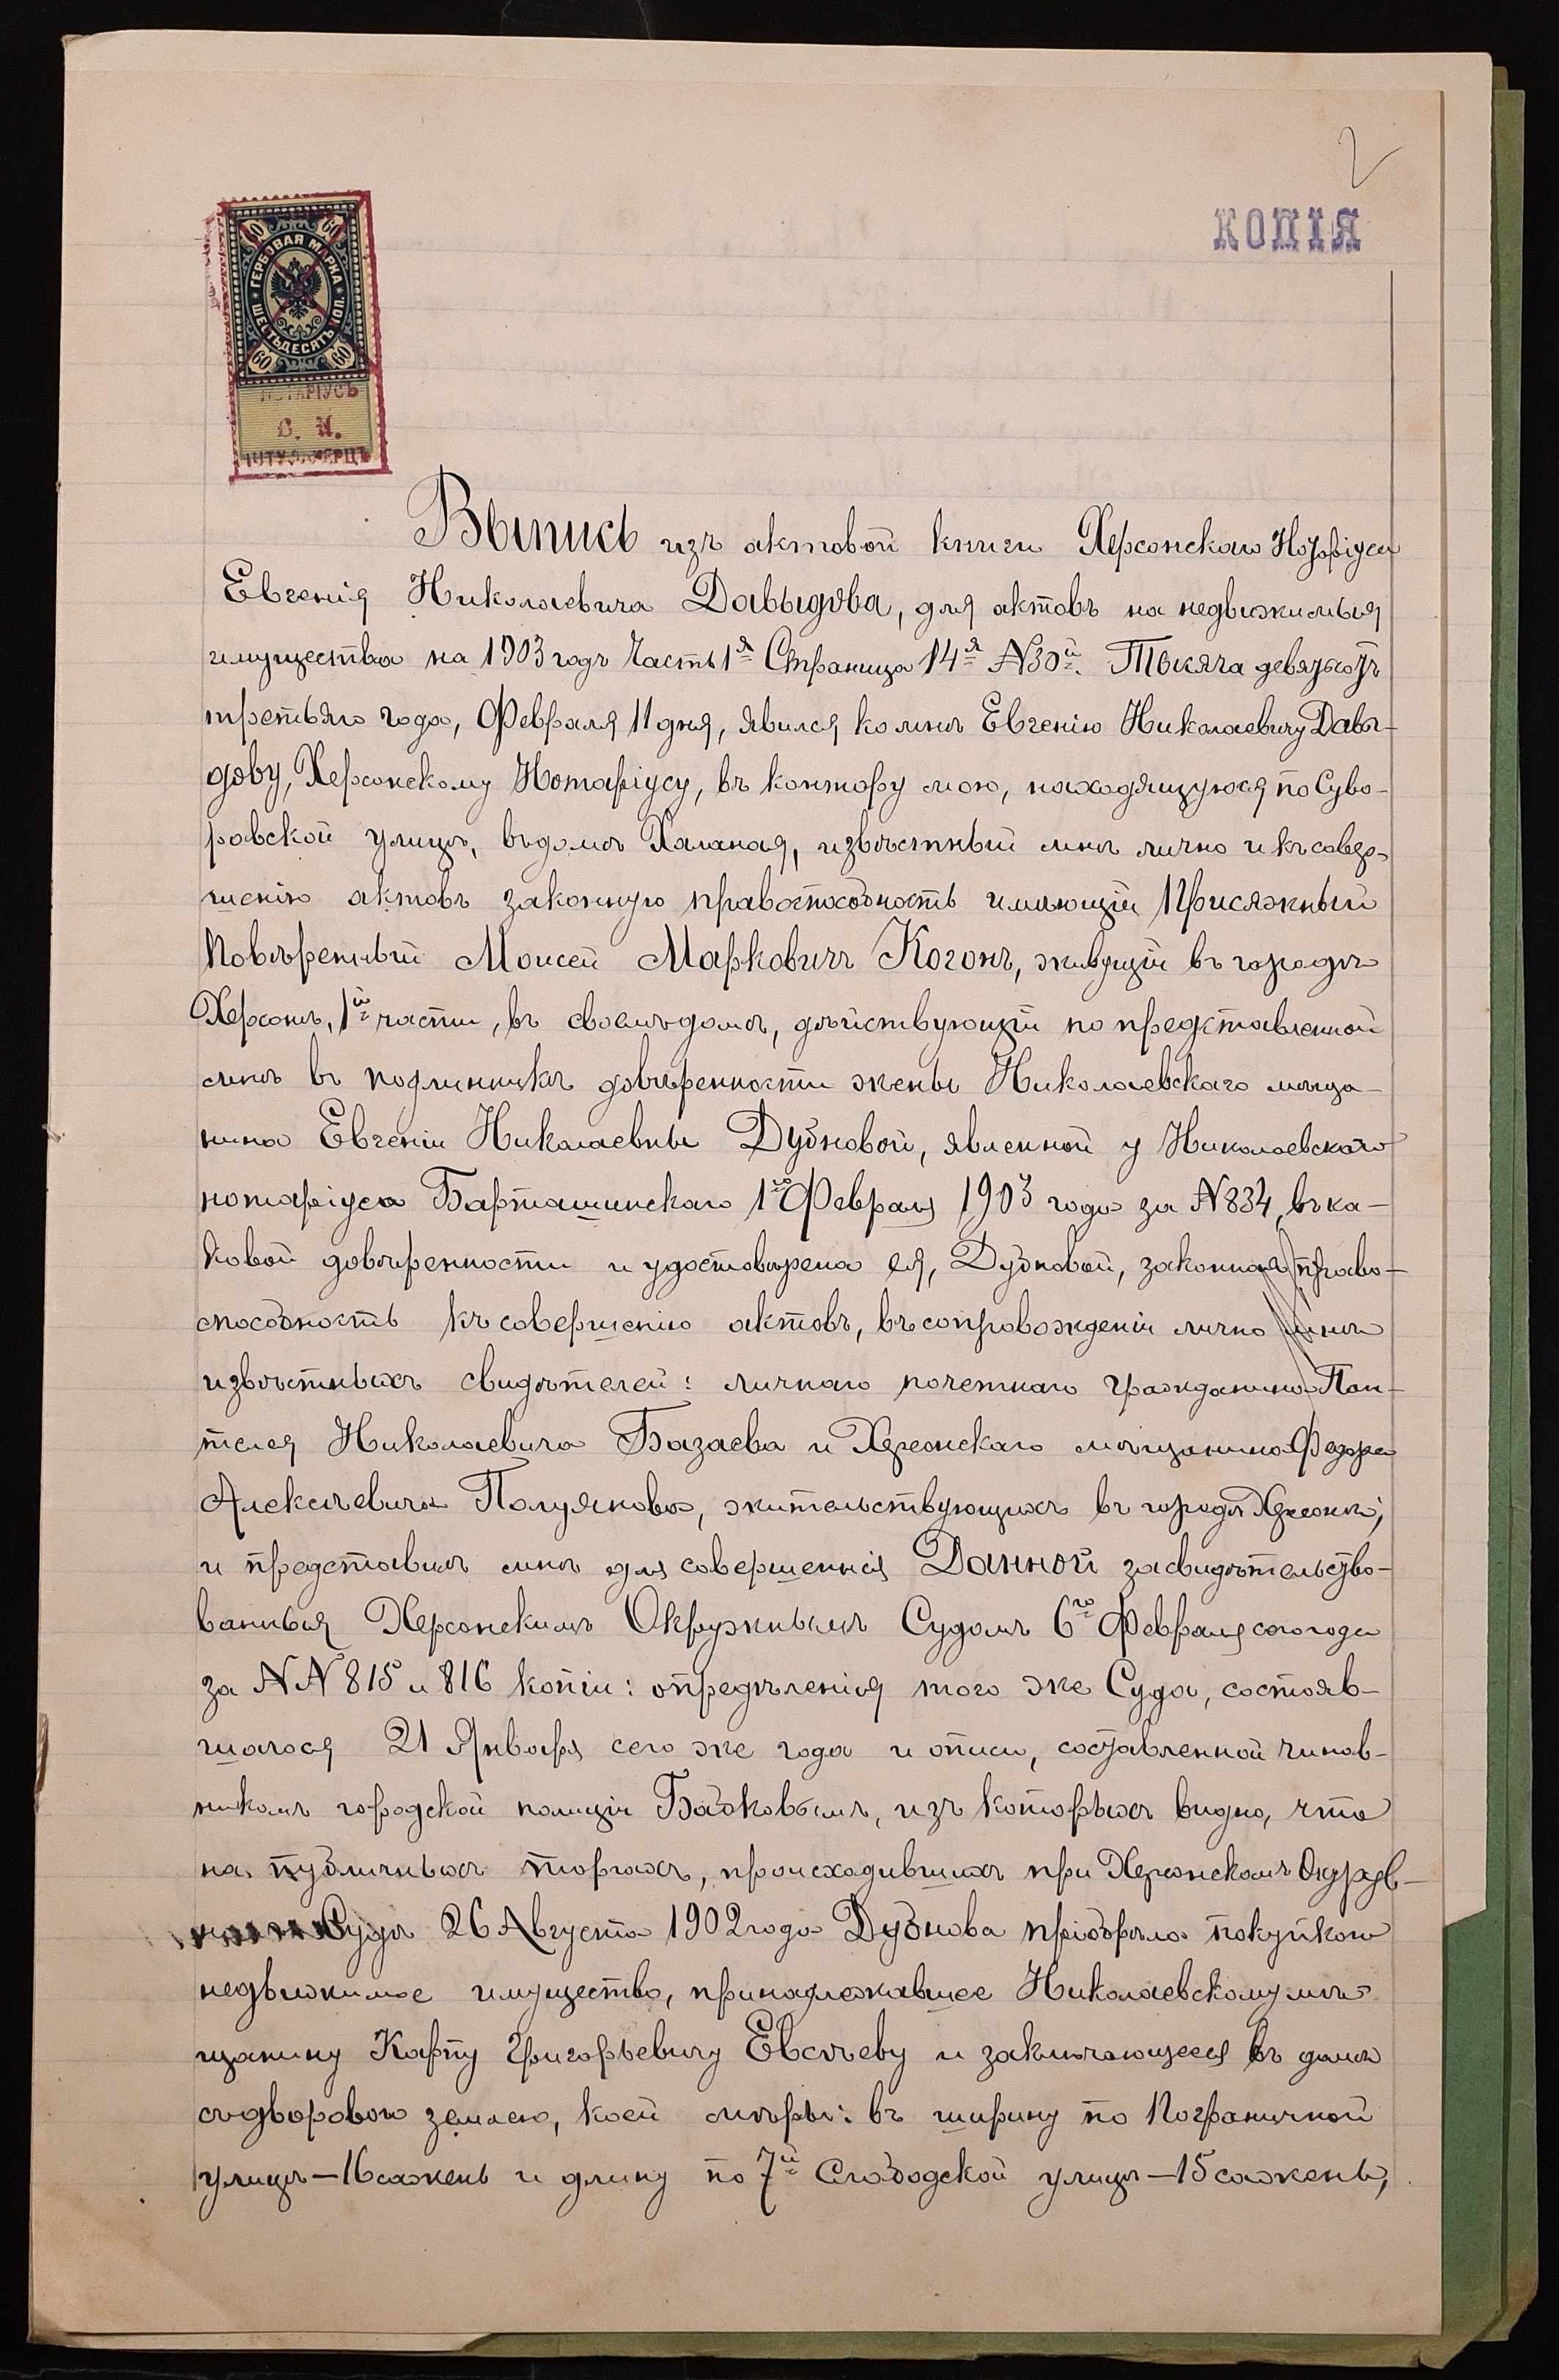 2
КОПІЯ
60 60
ГЕРБОВАЯ МАРКА
ШЕСТЬДЕСЯТЪ КОП.
60 60
НОТАРІУСЪ
Выпись изъ актовой книги Херсонскаго Нотаріуса
Евгенія Николаевича Давыдова, для актовъ на недвижимыя
имущества на 1903 годъ Часть 1я Страница 14я №30й. Тысяча девятьсотъ
третьяго года, Февраля 11 дня, явился ко мнѣ Евгенію Николаевичу Давы-
дову, Херсонскому Нотаріусу, въ контору мою, находящуюся по Суво-
ровской улицѣ, въ домѣ Халаная, извѣстный мнѣ лично и къ совер-
шенію актовъ законную правоспособность имѣющій Присяжный
Повѣренный Моисей Марковичъ Когонъ, живущій въ городѣ
Херсонѣ, 1й части, въ своемъ домѣ, дѣйствующій по представленной
мнѣ въ подлинникѣ довѣренности жены Николаевскаго мѣща-
нина Евгеніи Николаевны Дубновой, явленной у Николаевскаго
нотаріуса Барташинскаго 1го Февраля 1903 года за №834, въ ка-
ковой довѣренности и удостовѣрена ея, Дубновой, законная право-
способность къ совершенію актовъ, въ сопровожденіи лично мнѣ
извѣстныхъ свидѣтелей: личнаго почетнаго гражданина Пан-
телея Николаевича Базаева и Херсонскаго мѣщанина Федора
Алексѣевича Полуянова, жительствующихъ въ городѣ Херсонѣ,
и представилъ мнѣ для совершенія Данной засвидѣтельство-
ванныя Херсонскимъ Окружнымъ Судомъ 6го Февраля сего года
за №№ 815 и 816 копіи: опредѣленія того же Суда, состояв-
шагося 21 Января сего же года и описи, составленной чинов-
никомъ городской полиціи Бабковымъ, изъ которыхъ видно, что
на публичныхъ торгахъ, происходившихъ при Херсонскомъ Окруж-
номъ Судѣ 26 Августа 1902 года Дубнова пріобрѣла покупкою
недвижимое имущество, принадлежавшее Николаевскому мѣ-
щанину Карпу Григорьевичу Евсѣеву и заключающееся въ домѣ
съ дворовою землею, коей мѣры: въ ширину по Пограничной
улицѣ—16 сажень и длину по 7й Слободской улицѣ—15 сажень,